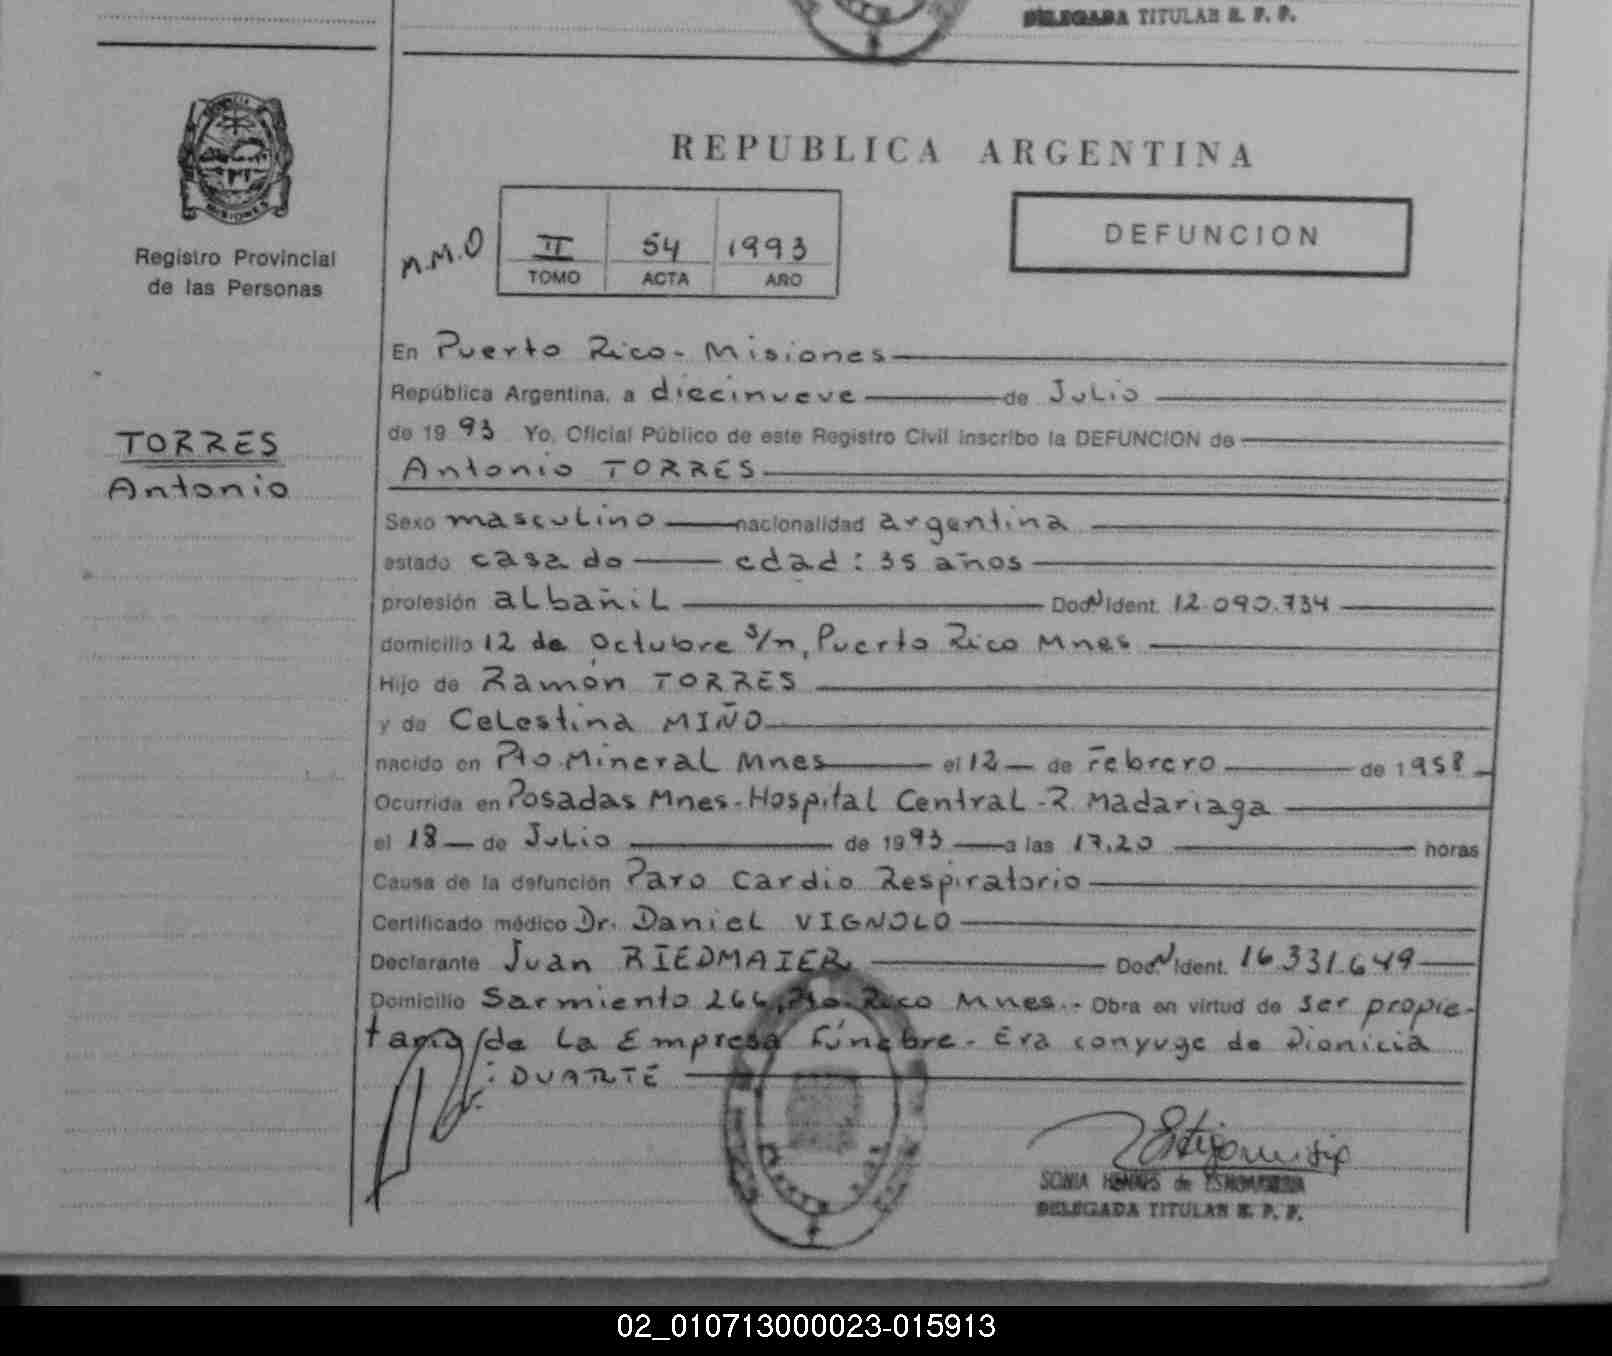 DELEGADA TITULAR R. P. P.
REPUBLICA ARGENTINA
MISIONES
Registro Provincial
de las Personas
M.M.O
II 54 1993
TOMO ACTA AÑO
DEFUNCION
TORRES
Antonio
En Puerto Rico - Misiones
República Argentina, a diecinueve de Julio
de 19 93 Yo, Oficial Público de este Registro Civil inscribo la DEFUNCION de
Antonio TORRES
Sexo masculino nacionalidad argentina
estado casado edad: 35 años
profesión albañil Doc. N Ident. 12.090.734
domicilio 12 de Octubre s/n, Puerto Rico Mnes
Hijo de Ramón TORRES
y de Celestina MIÑO
nacido en Pto. Mineral Mnes el 12 de Febrero de 1958
Ocurrida en Posadas Mnes - Hospital Central - R. Madariaga
el 18 de Julio de 1993 a las 17,20 horas
Causa de la defunción Paro Cardio Respiratorio
Certificado médico Dr. Daniel VIGNOLO
Declarante Juan RIEDMAIER Doc. N Ident. 16.331.649
Domicilio Sarmiento 266, Pto. Rico Mnes.- Obra en virtud de ser propie-
tario de la Empresa Fúnebre - Era conyuge de Dionicia
: DUARTE
SONIA de
DELEGADA TITULAR R. P. P.
02_010713000023-015913